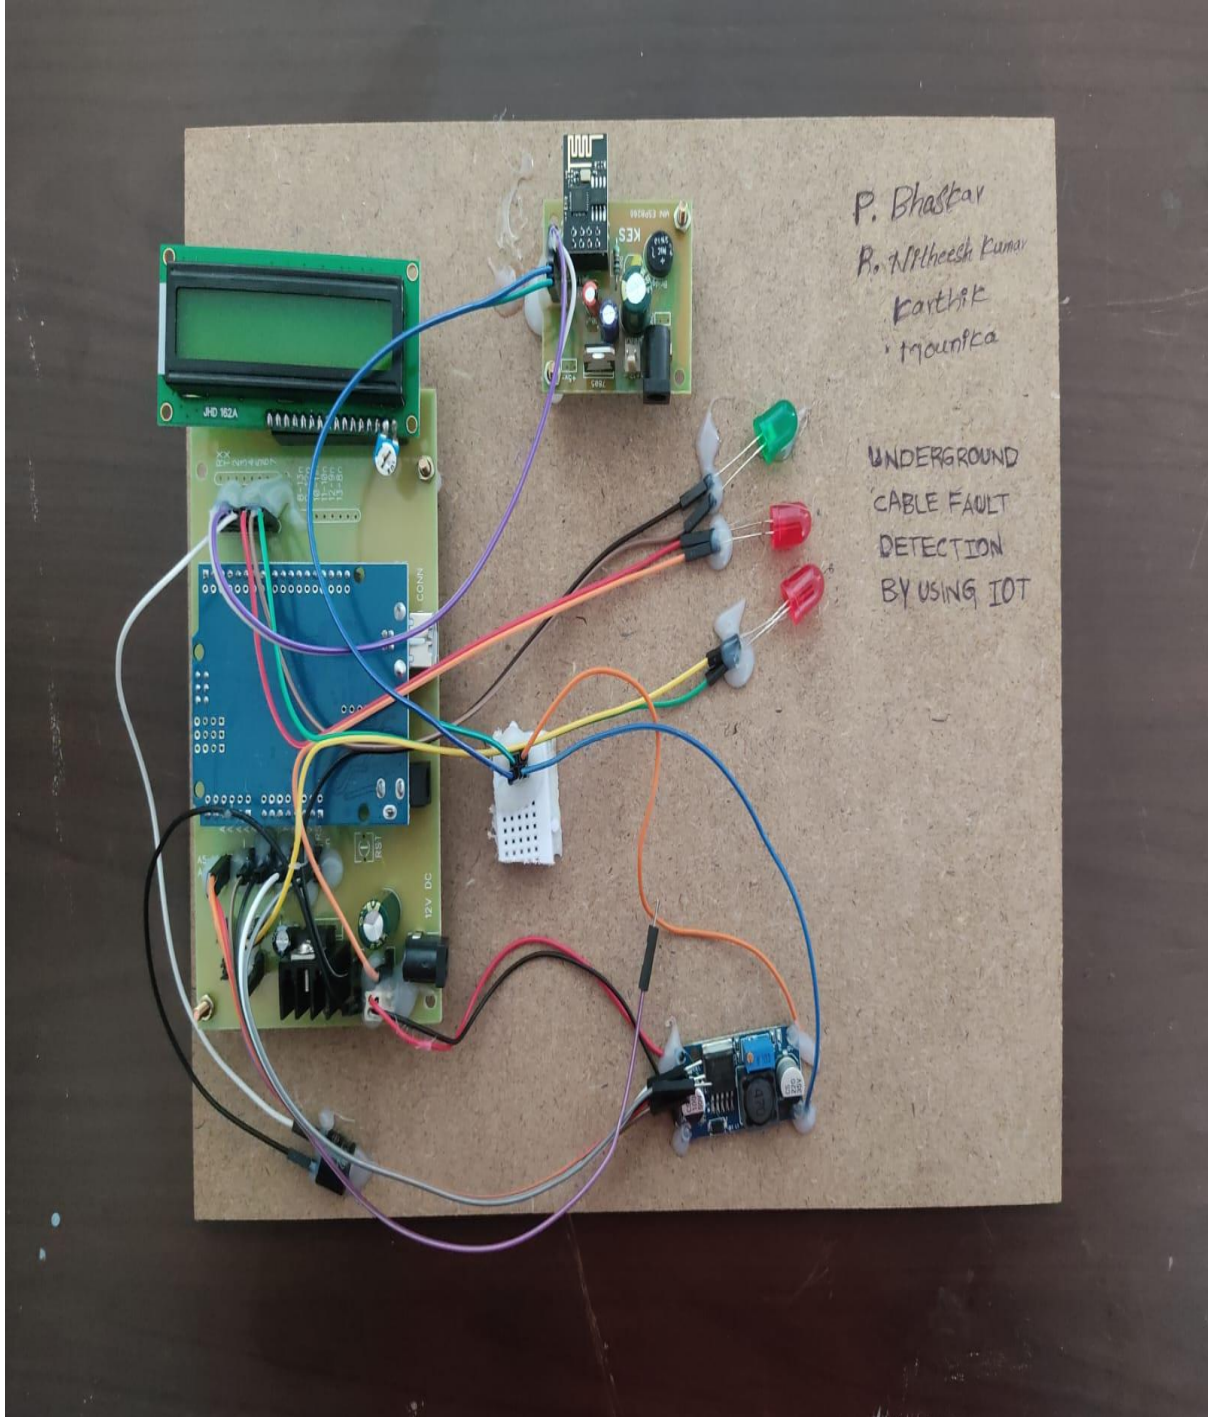 P. Bhaskar
R. Nitheesh Kumar
Karthik
Mounika
UNDERGROUND
CABLE FAULT
DETECTION
BY USING IOT
JHD 162A
KES
7805
CONN
RST
12V DC
470